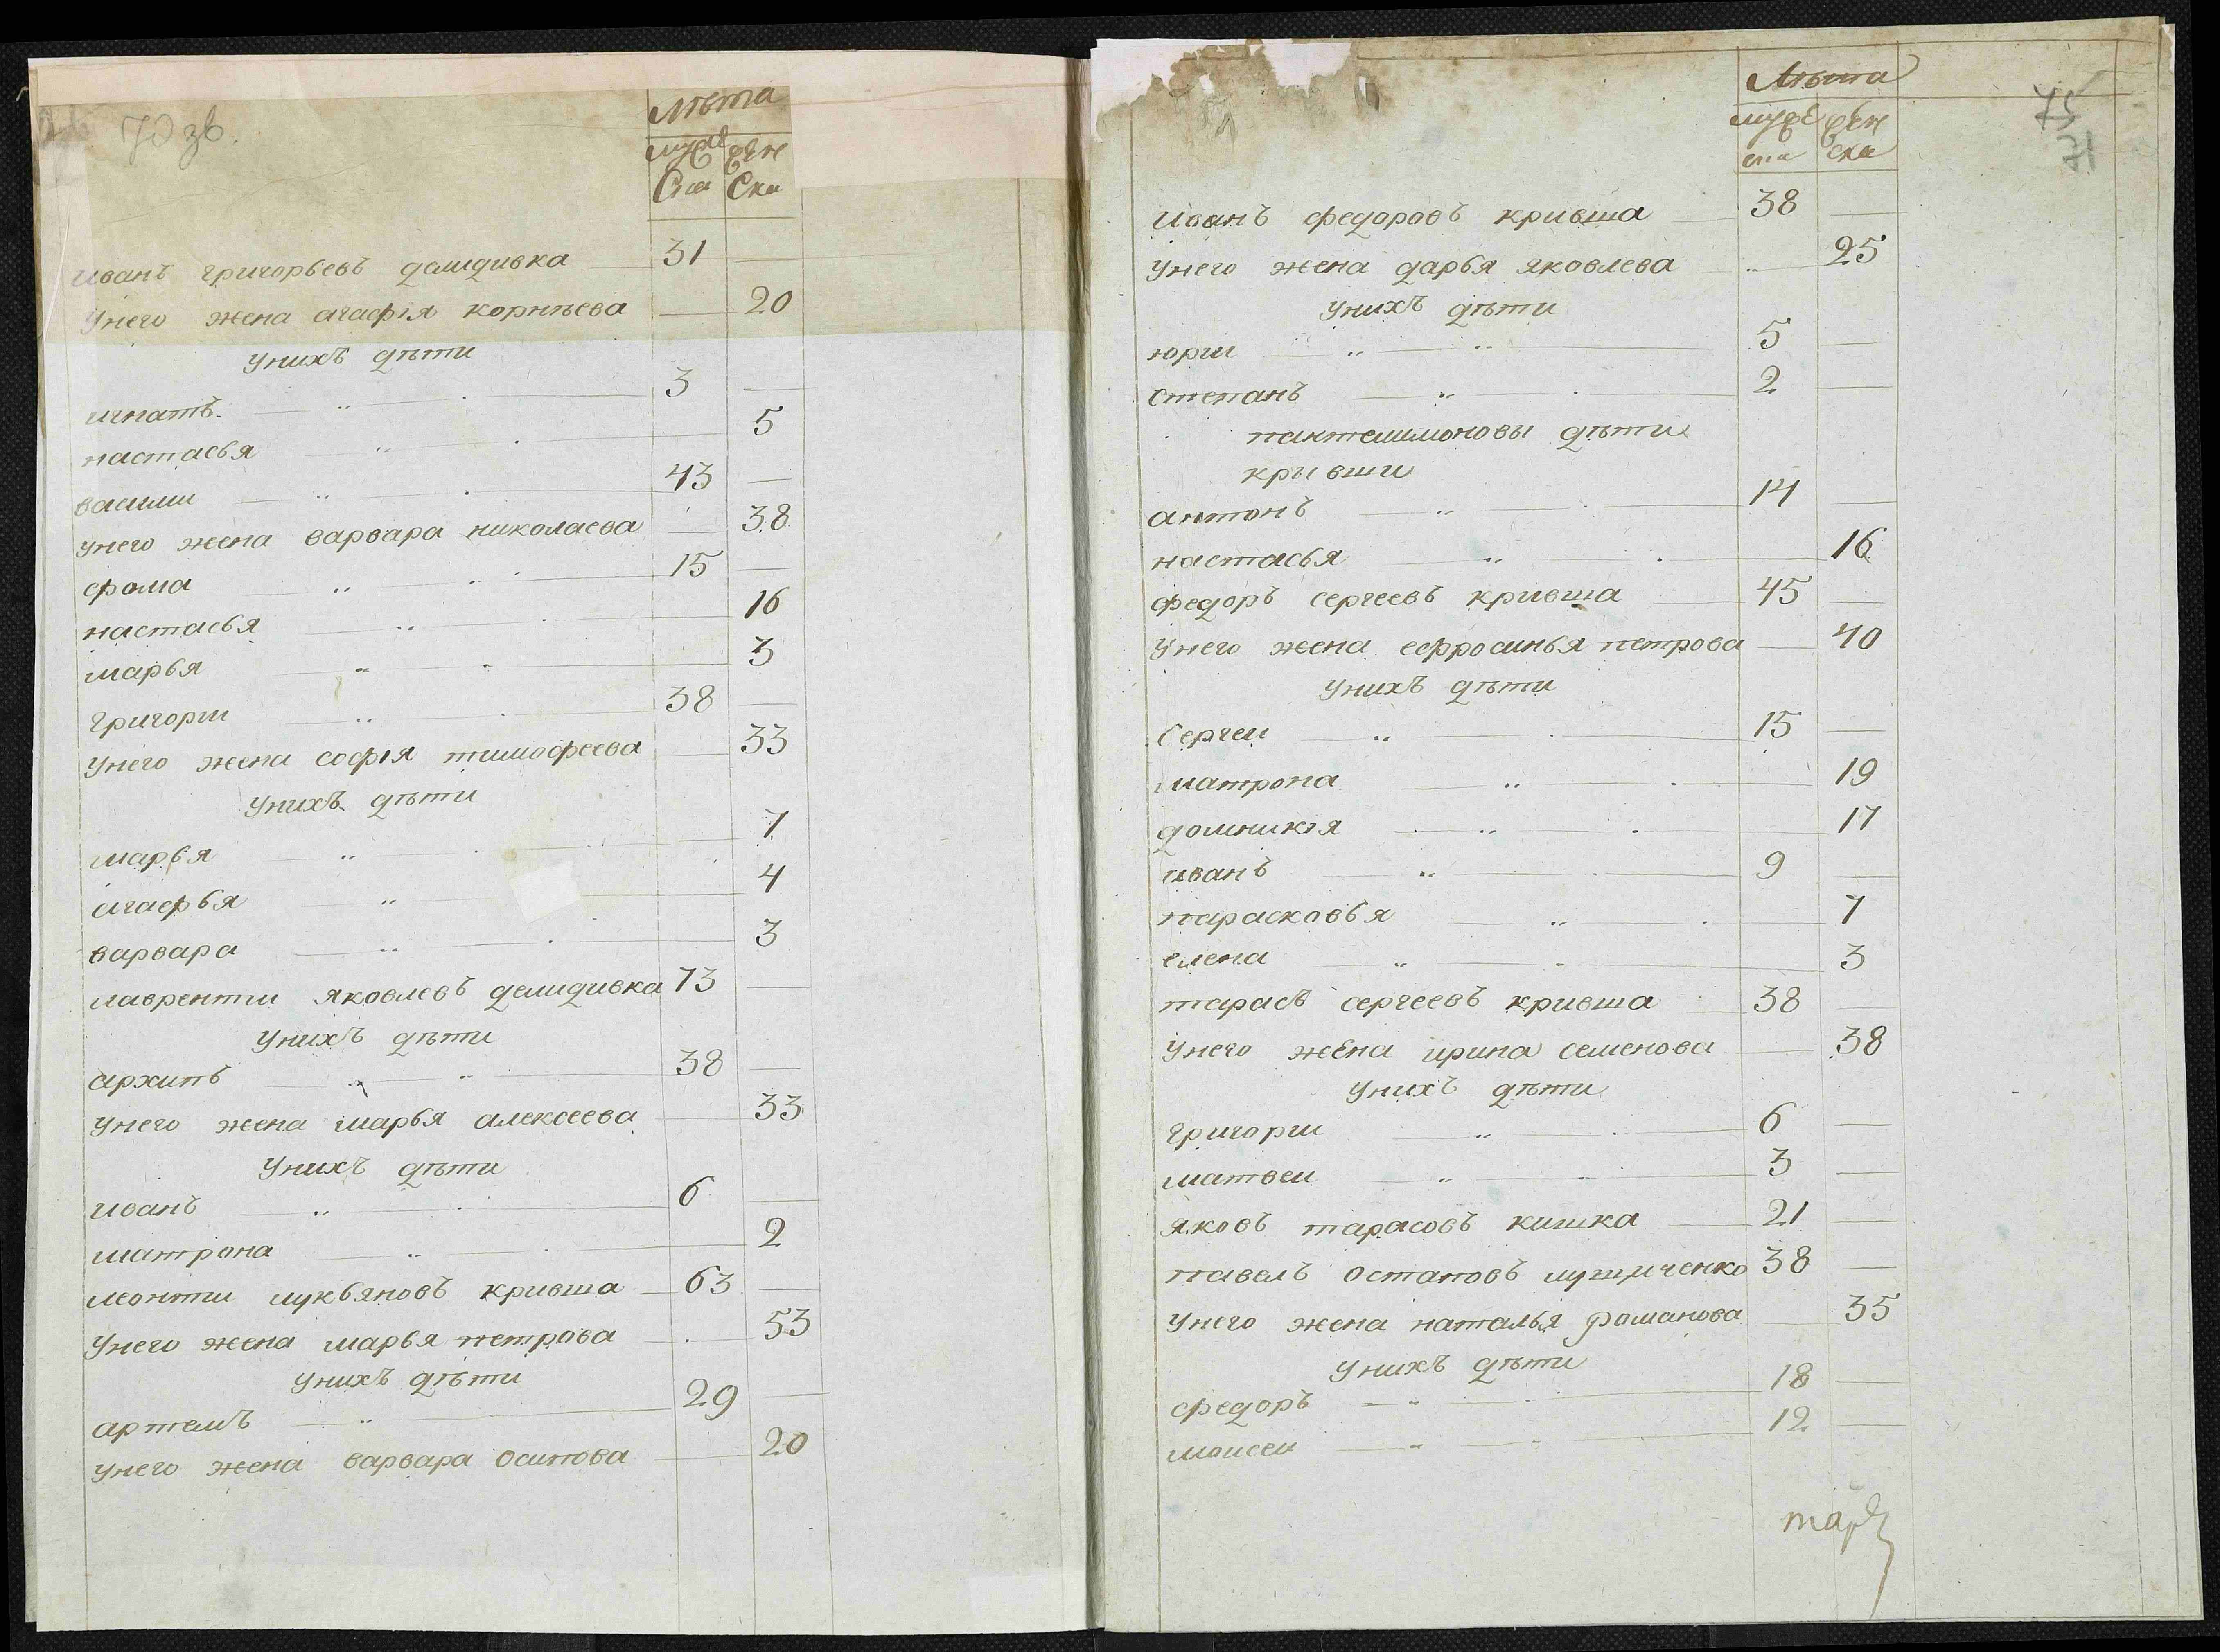 70 зв.
Лѣта
муже жен
ска ска
иванъ григорьевъ демидивка 31
унего жена агафія корнѣева 20
унихъ дѣти
игнатъ 3
настасья 5
васили 43
унего жена варвара николаева 38
фома 15
настасья 16
марья 3
григори 38
унего жена софія тимофеева 33
унихъ дѣти
марья 7
агафья 4
варвара 3
лавренти яковлевъ демидивка 73
унихъ дѣти
архипъ 38
унего жена марья алексеева 33
унихъ дѣти
иванъ 6
матрона 2
леонти лукьяновъ кривша 63
унего жена марья петрова 53
унихъ дѣти
артемъ 29
унего жена варвара осипова 20
Лѣта
муже жен
ска ска
75
иванъ федоровъ кривша 38
унего жена дарья яковлева 25
унихъ дѣти
юрии 5
степанъ 2
пантелимоновы дѣти
крывши
антонъ 14
настасья 16
федоръ сергеевъ кривша 45
унего жена еефросинья петрова 40
унихъ дѣти
сергеи 15
матрона 19
домникія 17
иванъ 9
парасковья 7
елена 3
тарасъ сергеевъ кривша 38
унего жена ирина семенова 38
унихъ дѣти
григори 6
матвеи 3
яковъ тарасовъ кишка 21
павелъ остаповъ 38
унего жена наталья романова 35
унихъ дѣти
федоръ 18
моисеи 12